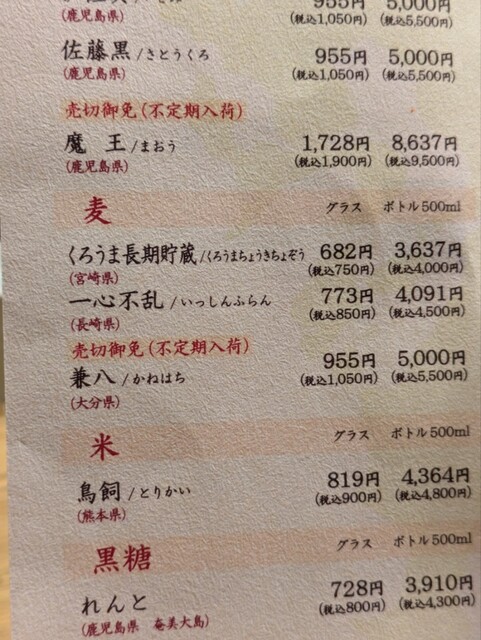 955円 5,000円
(鹿児島県) (税込1,050円) (税込5,500円)
佐藤黒/さとうくろ 955円 5,000円
(鹿児島県) (税込1,050円) (税込5,500円)
売切御免(不定期入荷)
魔 王/まおう 1,728円 8,637円
(鹿児島県) (税込1,900円) (税込9,500円)
麦 グラス ボトル500ml
くろうま長期貯蔵/くろうまちょうきちょぞう 682円 3,637円
(宮崎県) (税込750円) (税込4,000円)
一心不乱/いっしんふらん 773円 4,091円
(長崎県) (税込850円) (税込4,500円)
売切御免(不定期入荷)
兼八/かねはち 955円 5,000円
(大分県) (税込1,050円) (税込5,500円)
米 グラス ボトル500ml
鳥飼/とりかい 819円 4,364円
(熊本県) (税込900円) (税込4,800円)
黒糖 グラス ボトル500ml
れんと 728円 3,910円
(鹿児島県 奄美大島) (税込800円) (税込4,300円)